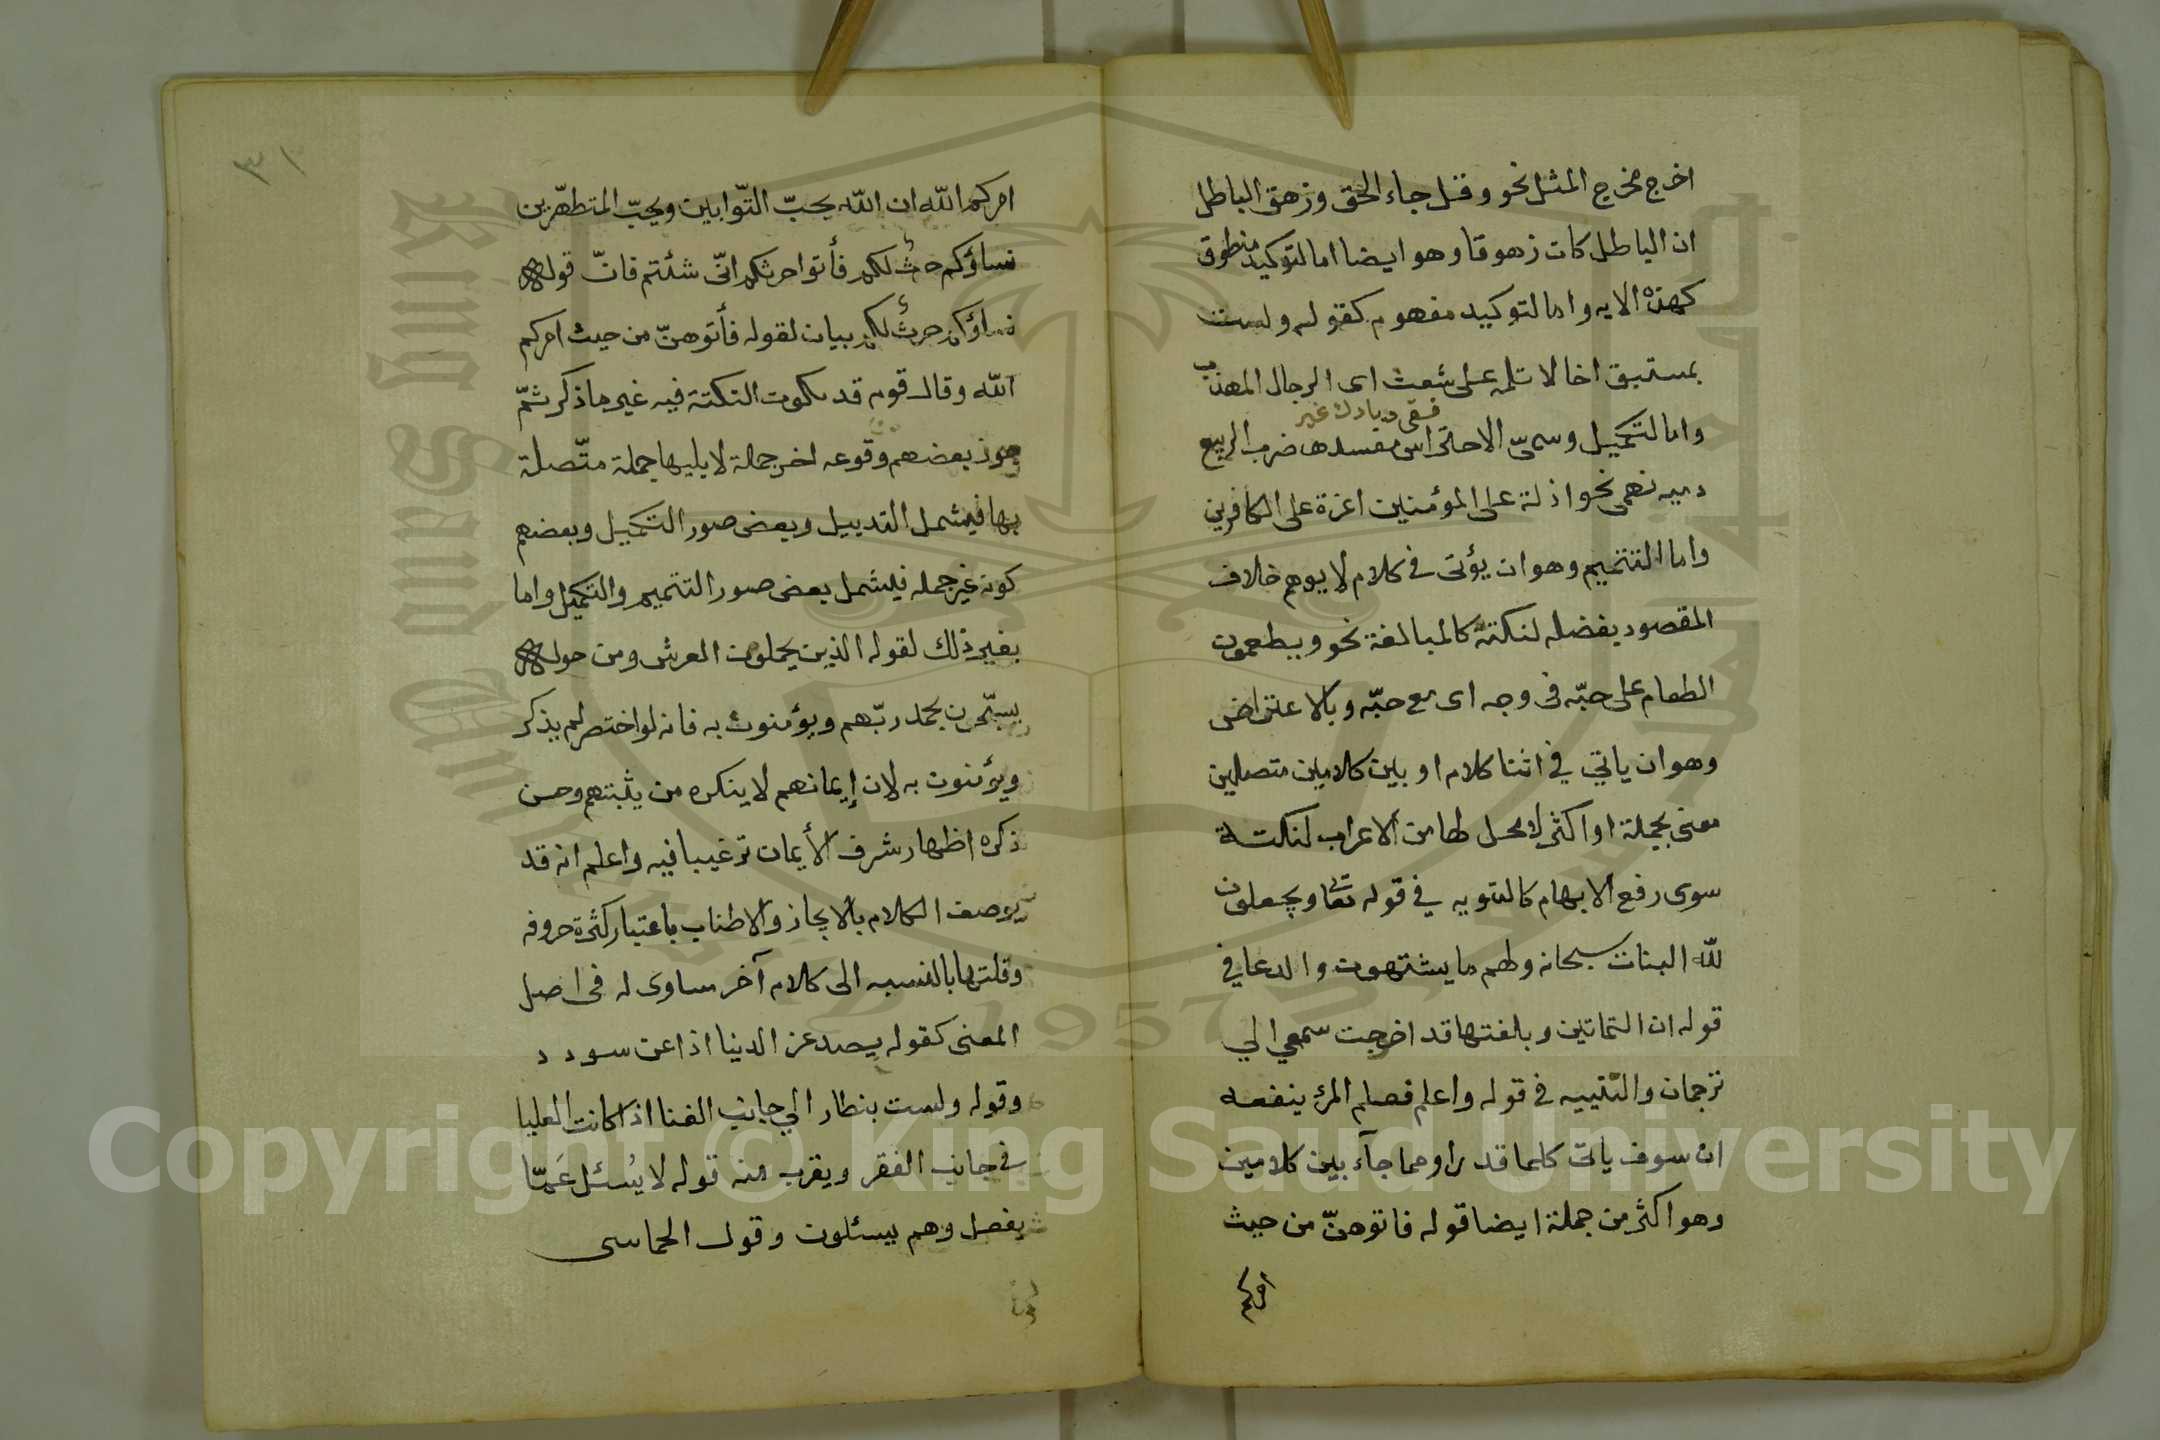 اخرج مخرج المثل نحو وقل جاء الحق وزهق الباطل
ان الباطل كان زهوقا وهو ايضا اما لتوكيد منطوق
كهذه الايه واما لتوكيد مفهوم كقوله ولست
بمستبق اخا لا تلمه على شعث اى الرجال المهذب
فسقى ديارك غير
واما لتكميل وسمىّ الاحتراس مفسدها ضرب الربيع
ديمه تهمى نحو اذلة على المؤمنين اعزة على الكافرين
واما التتميم وهو ان يؤتى في كلام لا يوهم خلاف
المقصود بفضله لنكتة كالمبالغة نحو ويطعمون
الطعام على حبّه فى وجه اى مع حبّه وبالاعتراض
وهو ان ياتي في اثنا كلام او بين كلامين متصلين
معنى بجملة او اكثر لا محل لها من الاعراب لنكتة
سوى رفع الابهام كالتنويه في قوله تعا ويجعلون
لله البنات سبحانه ولهم ما يشتهون والدعا في
قوله ان الثمانين وبلغتها قد احوجت سمعي الي
ترجمان والتنبيه في قوله واعلم فعلم المرء ينفعه
ان سوف يات كلما قدرا ومما جآء بين كلامين
وهو اكثر من جملة ايضا قوله فاتوهنّ من حيث
امركم
٣١
امركم الله ان الله يحبّ التّوابين ويحبّ المتطهّرين
نساؤكم حرث لكم فأتوا حرثكم انّى شئتم فانّ قوله
نساؤكم حرث لكم بيان لقوله فأتوهنّ من حيث امركم
الله وقال قوم قد تكون النكتة فيه غير ما ذكر ثمّ
جوز بعضهم وقوعه اخر جملة لا يليها جملة متّصلة
بها فيشمل التدييل وبعض صور التكميل وبعضهم
كونه غير جمله فيشمل بعض صور التتميم والتكميل واما
بغير ذلك لقوله الذين يحملون العرش ومن حوله
يسبّحون بحمد ربّهم ويؤمنون به فانه لو اختصر لم يذكر
ويؤمنون به لان إيمانهم لا ينكره من يثبتهم وحسن
ذكره اظهار شرف الأيمان ترغيبا فيه واعلم انه قد
يوصف الكلام بالايجاز والاطناب باعتبار كثرة حروفه
وقلتها بالنسبه الى كلام آخر مساوى له فى اصل
المعنى كقوله يصد عن الدنيا اذا عن سودد
وقوله ولست بنظار الي جانب الغنا اذا كانت العليا
في جانب الفقر ويقرب منه قوله لا يُسئل عَمّا
يفعل وهم يسئلون وقول الحماسى